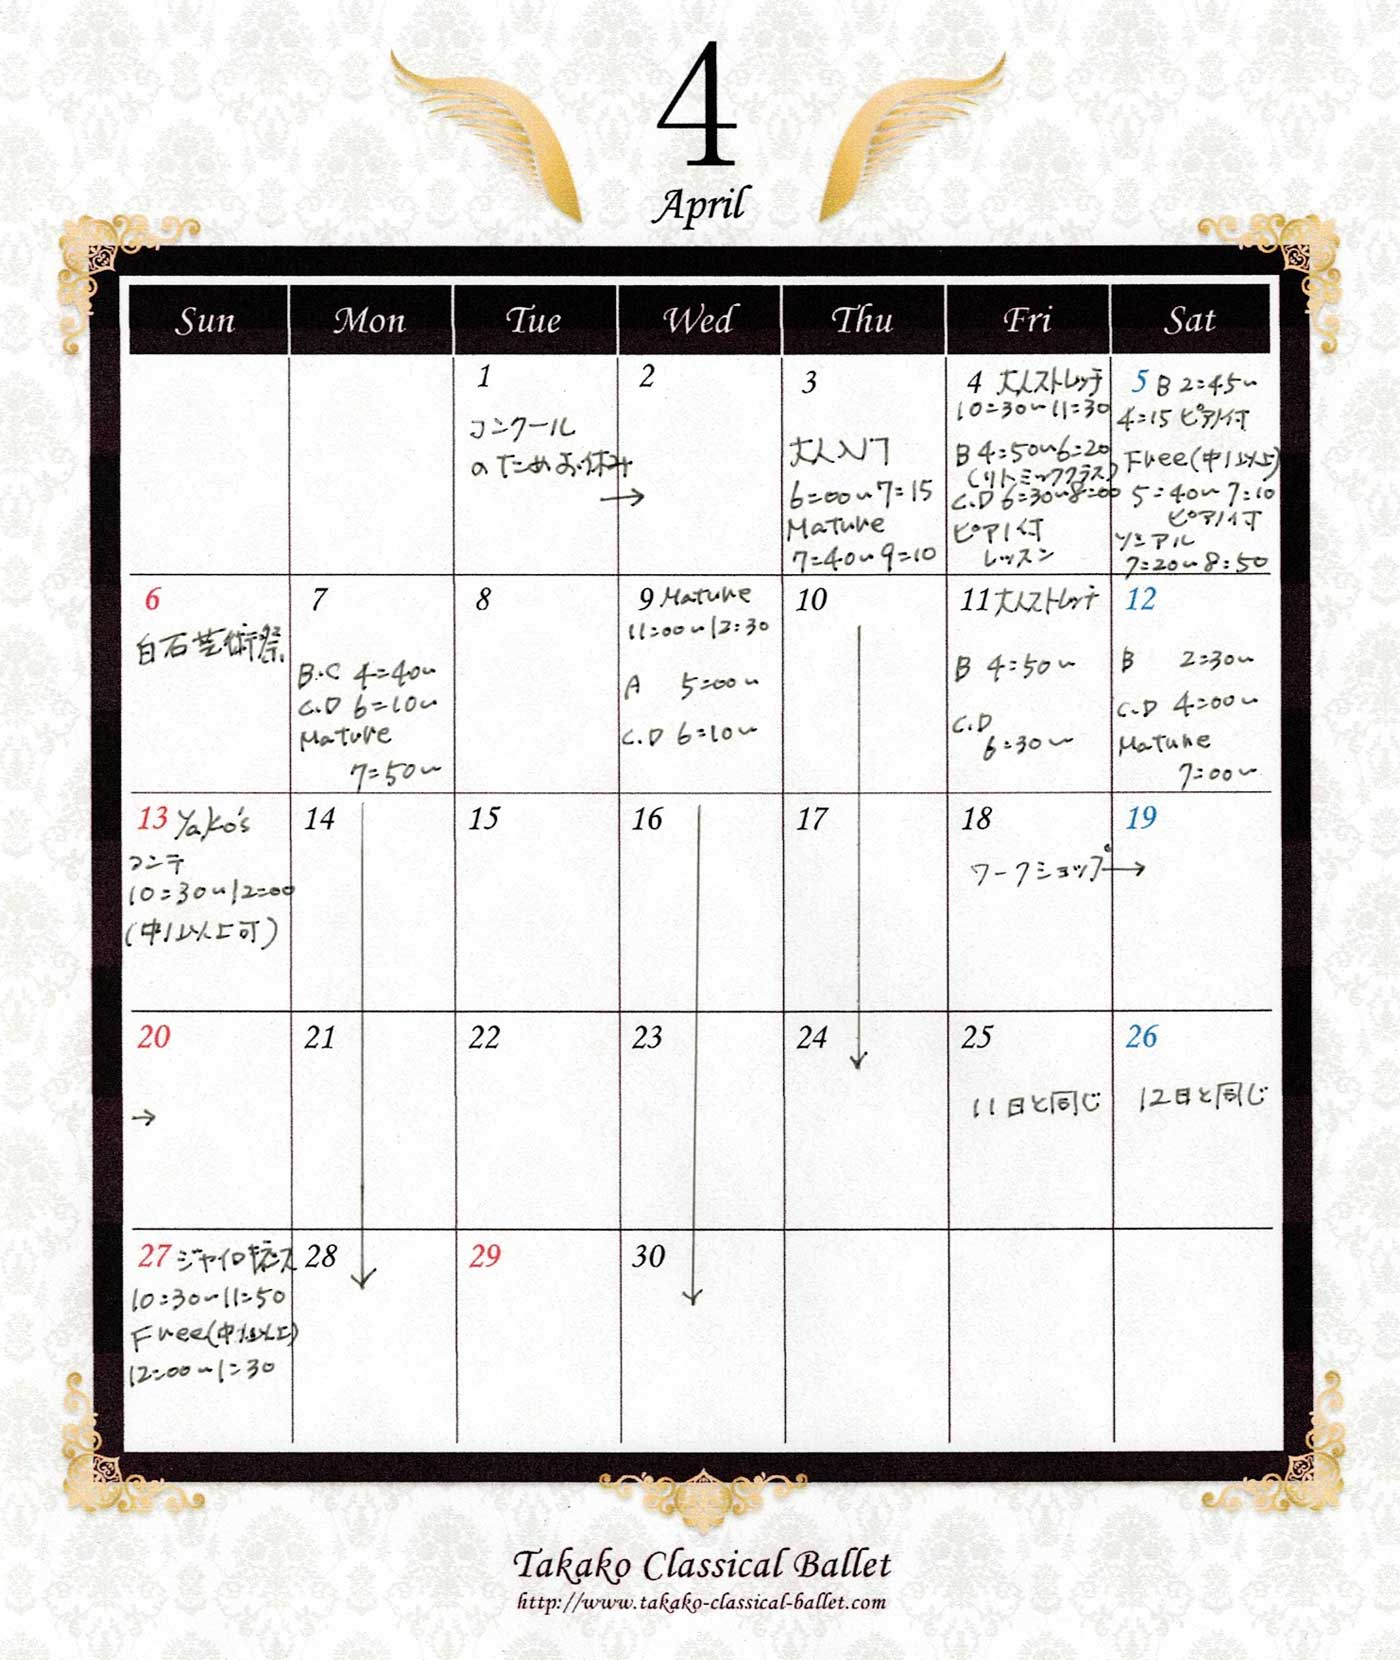 4
April
Sun Mon Tue Wed Thu Fri Sat
1
コンクール
のためお休み
→
2
3
大人入門
6=00〜7=15
Mature
7=40〜9=10
4 大人ストレッチ
10=30〜11=30
B 4=50〜6=20
(リトミッククラス)
C.D 6=30〜8=00
ピアノ付
レッスン
5 B 2=45〜
4=15 ピアノ付
Free(中1以上)
5=40〜7=10
ピアノ付
ソシアル
7=20〜8=50
6
白石芸術祭
7
B.C 4=40〜
C.D 6=10〜
Mature
7=50〜
8
9 Mature
11=00〜12:30
A 5=00〜
C.D 6=10〜
10
11 大人ストレッチ
B 4=50〜
C.D
6=30〜
12
B 2=30〜
C.D 4=00〜
Mature
7=00〜
13 Yako's
コンテ
10=30〜12=00
(中1以上可)
14
15
16
17
18
ワークショップ→
19
20
→
21
22
23
24
25
11日と同じ
26
12日と同じ
27 ジャイロキネシス
10=30〜11=50
Free(中1以上)
12=00〜1=30
28
29
30
Takako Classical Ballet
http://www.takako-classical-ballet.com